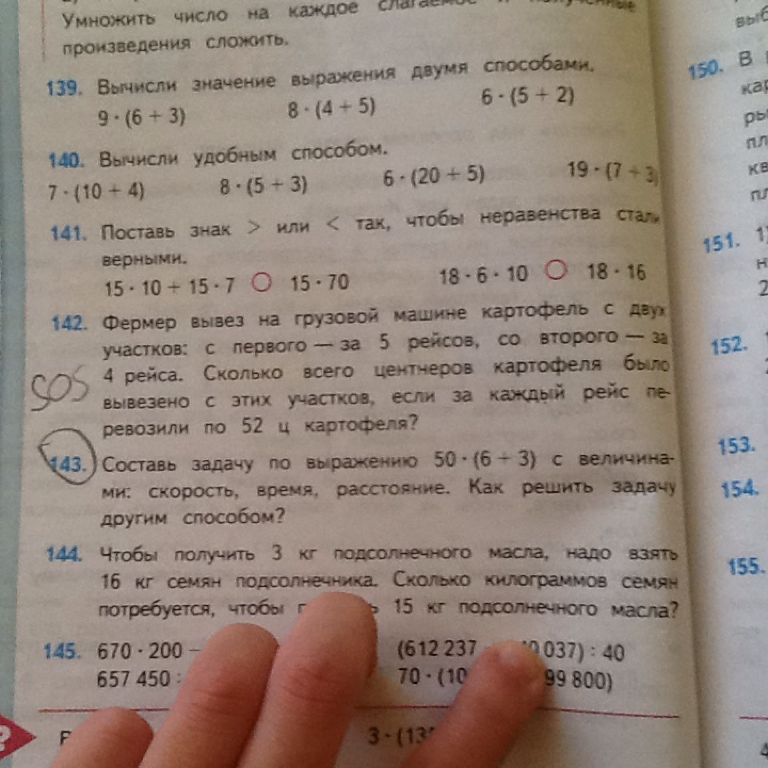 Умножить число на каждое слагаемое и полученные
произведения сложить.
139. Вычисли значение выражения двумя способами.
9 · (6 + 3) 8 · (4 + 5) 6 · (5 + 2)
140. Вычисли удобным способом.
7 · (10 + 4) 8 · (5 + 3) 6 · (20 + 5) 19 · (7 + 3)
141. Поставь знак > или < так, чтобы неравенства стали
верными.
15 · 10 + 15 · 7 ○ 15 · 70 18 · 6 · 10 ○ 18 · 16
142. Фермер вывез на грузовой машине картофель с двух
участков: с первого — за 5 рейсов, со второго — за
4 рейса. Сколько всего центнеров картофеля было
вывезено с этих участков, если за каждый рейс пе-
ревозили по 52 ц картофеля?
SOS
143. Составь задачу по выражению 50 · (6 + 3) с величина-
ми: скорость, время, расстояние. Как решить задачу
другим способом?
144. Чтобы получить 3 кг подсолнечного масла, надо взять
16 кг семян подсолнечника. Сколько килограммов семян
потребуется, чтобы 15 кг подсолнечного масла?
145. 670 · 200 − (612 237 0 037) : 40
657 450 : 70 · (10 99 800)
?
3 · (13
150. В
151. 1)
2
152.
153.
154.
155.